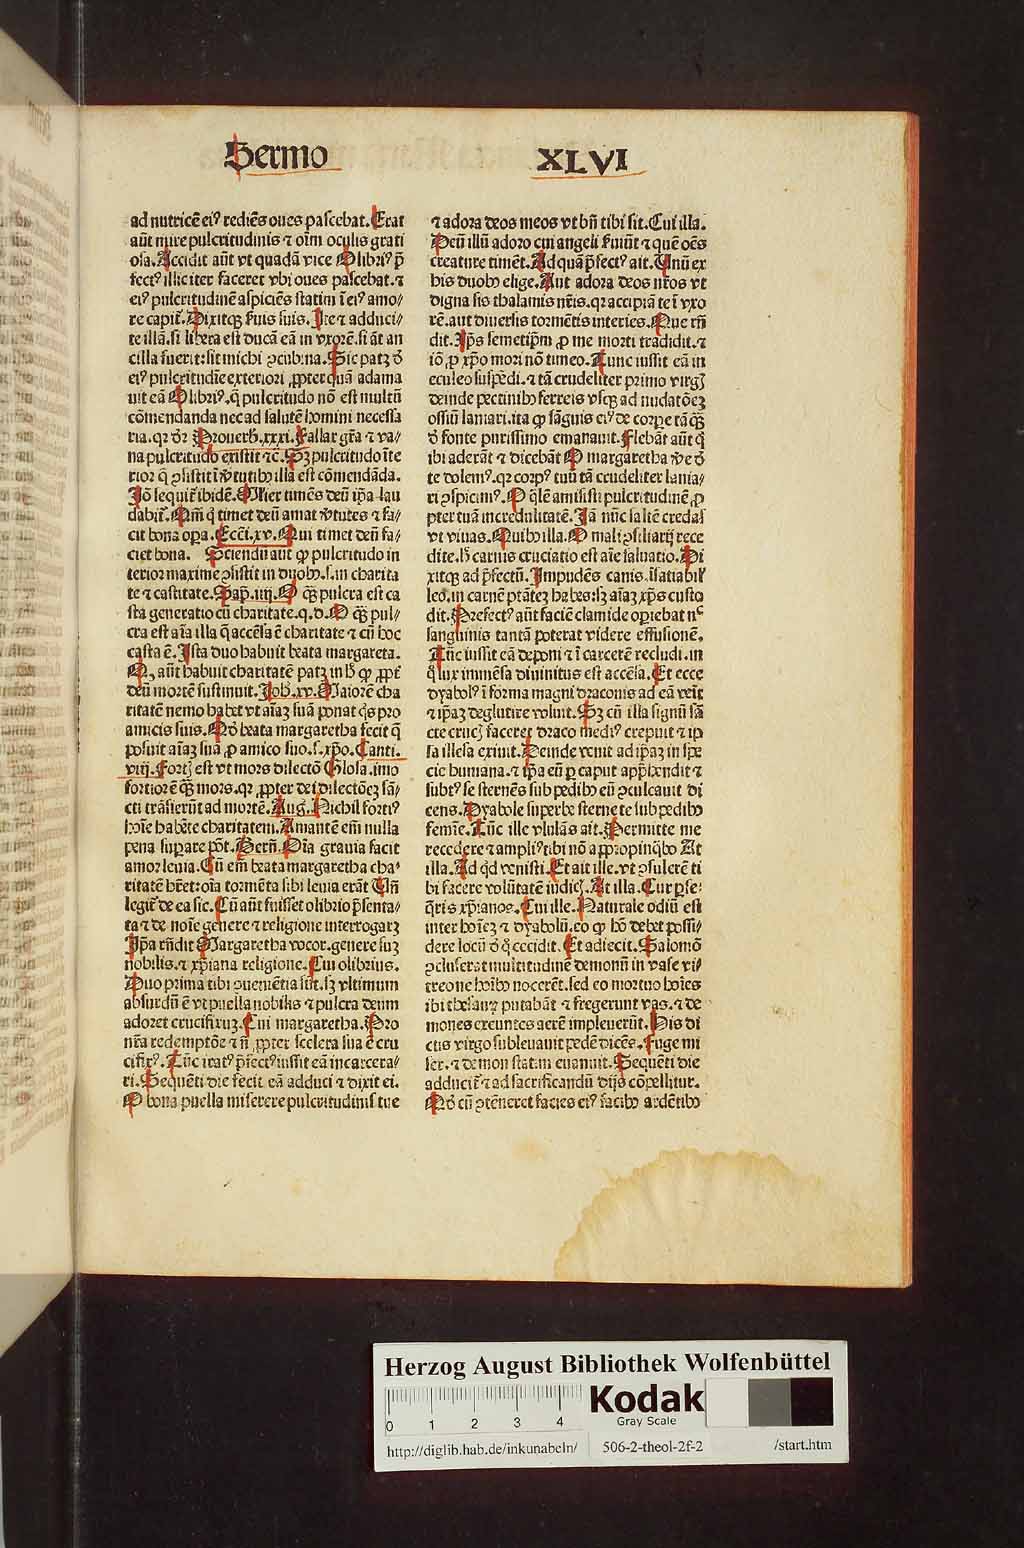 Sermo XLVI
ad nutricē eiꝰ rediēs oues pascebat. Erat
aūt mire pulcritudinis ⁊ oīm oculis grati
osa. Accidit aūt vt quadā vice Olibriꝰ p̄
fectꝰ illic iter faceret vbi oues pascebat. ⁊
eiꝰ pulcritudinē aspiciēs statim ī eiꝰ amo/
re capit᷑. Dixitqꝫ ſuis suis. Ite ⁊ adduci/
te illā. si libera est ducā eā in vxorē. si āt an
cilla fuerit: sit michi ꝯcubina. Sic patꝫ ō
eiꝰ pulcritudīe exteriori ꝓpter quā adama
uit eā Olibriꝰ. q̄ pulcritudo nō est multū
cōmendanda nec ad salutē homini necessa
ria. qr ōr Prouerb. xxxi. Fallax gr̄a ⁊ va/
na pulcritudo existit ⁊c̄. Sꝫ pulcritudo īte
rior q̄ ꝯsistit ī v̄tutibꝰ illa est cōmendāda.
Iō sequit᷑ ibidē. Mlier timēs deū ip̄a lau
dabit᷑. Nā q̄ timet deū amat v̄tutes ⁊ fa/
cit bona oꝑa. Ecci. xv. Qui timet deū fa/
ciet bona. Sciendū aūt ꝙ pulcritudo in
terior maxime ꝯsistit in duobꝰ. s. in charita
te ⁊ castitate. Sap. iiij. O qꝫ̄ pulcra est ca
sta generatio cū charitate. q. d. O qꝫ̄ pul/
cra est aīa illa q̄ accēsa ē charitate ⁊ cū hoc
casta ē. Ista duo habuit beata margareta.
Qꝫ aūt habuit charitatē patꝫ in hꝰ ꝙ ꝓpt᷑
deū mortē sustinuit. Ioh. xv. Maiorē cha
ritatē nemo habet vt aīaꝫ suā ponat qͥs pro
amicis suis. Sꝫ beata margaretha fecit q̄
posuit aīaꝫ suā ꝓ amico suo. s. xp̄o. Canti.
viij. Fortꝭ est vt mors dilectō Glosa. imo
fortior ē qꝫ̄ mors. qr ꝓpter dei dilectōeꝫ sā/
cti trāsierūt ad mortē. Aug. Nichil fortiꝰ
hoīe habēte charitatem. Amantē em̄ nulla
pena suꝑare pōt. Bern̄. Oīa grauia facit
amor leuia. Cū em̄ beata margaretha cha/
ritatē hr̄et: oīa tormēta sibi leuia erāt Vn̄
legit᷑ de ea sic. Cū aūt fuisset olibrio p̄senta/
ta ⁊ de noīe genere ⁊ religione interrogaꝫ
Ip̄a rn̄dit Margaretha vocor. genere suꝫ
nobilis. ⁊ xp̄iana religione. Cui olibrius.
Duo prima tibi ꝯueniētia sūt. sꝫ vltimum
absurdū ē vt puella nobilis ⁊ pulcra deum
adoret crucifixuꝫ. Cui margaretha. Pro
nr̄a redemptōe ⁊ n̄ ꝓpter scelera sua ē cru
cifixꝰ. Tūc iratꝰ p̄fectꝰ iussit eā incarcera/
ri. Sequēti die fecit eā adduci ⁊ dixit ei.
O bona puella miserere pulcritudinis tue
⁊ adora deos meos vt bn̄ tibi sit. Cui illa.
Deū illū adoro cui angeli ſuiūt ⁊ quē oēs
creature timēt. Ad quā p̄fectꝰ ait. Unū ex
his duobꝰ elige. Aut adora deos nr̄os vt
digna sis thalamis nr̄is. qr accipiā te ī vxo
rē. aut diuersis tormētis interies. Que rn̄
dit. Ip̄s semetip̄m ꝓ me morti tradidit. ⁊
iō ꝓ xp̄o mori nō timeo. Tunc iussit eā in
eculeo suspēdi. ⁊ tā crudeliter primo virgꝭ
deinde pectinibꝰ ferreis vsqꝫ ad nudatōeꝫ
ossiū laniari. ita ꝙ sāguis eiꝰ de corpe tāqꝫ̄
ō fonte purissimo emanauit. Flebāt aūt q̄
ibi aderāt ⁊ dicebāt O margaretha v̄e ō
te dolemꝰ. qr corpꝰ tuū tā crudeliter lania/
ri ꝯspicimꝰ. O q̄lē amisisti pulcritudinē ꝓ
pter tuā incredulitatē. Iā nūc saltē credas
vt viuas. Quibꝰ illa. O mali ꝯsiliarij rece
dite. hꝰ carnis cruciatio est aīe saluatio. Di
xitqꝫ ad p̄fectū. Impudēs canis. īsatiabil᷑
leo. in carnē ptātez habes: sꝫ aīaꝫ xp̄s custo
dit. Prefectꝰ aūt faciē clamide oꝑiebat nec
sanguinis tantā poterat videre effusionē.
Tūc iussit eā deponi ⁊ ī carcerē recludi. in
q̄ lux immēsa diuinitus est accēsa. Et ecce
dyabolꝰ ī forma magni draconis ad eā veīt
⁊ ip̄aꝫ deglutire voluit. Sꝫ cū illa signū sā
cte crucꝭ faceret draco mediꝰ crepuit ⁊ ip
sa illesa exiuit. Deinde venit ad ip̄aꝫ in spe
cie humana. ⁊ ip̄a eū ꝑ caput app̄hendit ⁊
subtꝰ se sternēs sub pedibꝰ eū ꝯculcauit di
cens. Dyabole superbe sterne te sub pedibꝰ
femīe. Tūc ille vlulās ait. Permitte me
recedere ⁊ ampliꝰ tibi nō appropinqͣbo At
illa. Ad qͥd venisti. Et ait ille. vt ꝯsulerē ti
bi facere volūtatē iudicꝭ. At illa. Cur ꝑse/
q̄ris xp̄ianos. Cui ille. Naturale odiū est
inter hoīeꝫ ⁊ dyabolū. eo ꝙ hō debet possi/
dere locū ō q̄ cecidit. Et adiecit. Salomō
ꝯcluserat multitudinē demonū in vase vi/
treo ne hoībꝰ nocerēt. sed eo mortuo hoīes
ibi thesauꝝ putabāt ⁊ fregerunt vas. ⁊ de
mones exeuntes aerē impleuerūt. His di
ctis virgo subleuauit pedē dicēs. Fuge mi
ser. ⁊ demon statim euanuit. Sequēti die
adducit᷑ ⁊ ad sacrificandū dijs cōpellitur.
Qd̄ cū ꝯtēneret facies eiꝰ facibꝰ ardētibꝰ
Herzog August Bibliothek Wolfenbüttel
0 1 2 3 4
Kodak
Gray Scale
http://diglib.hab.de/inkunabeln/ 506-2-theol-2f-2 /start.htm